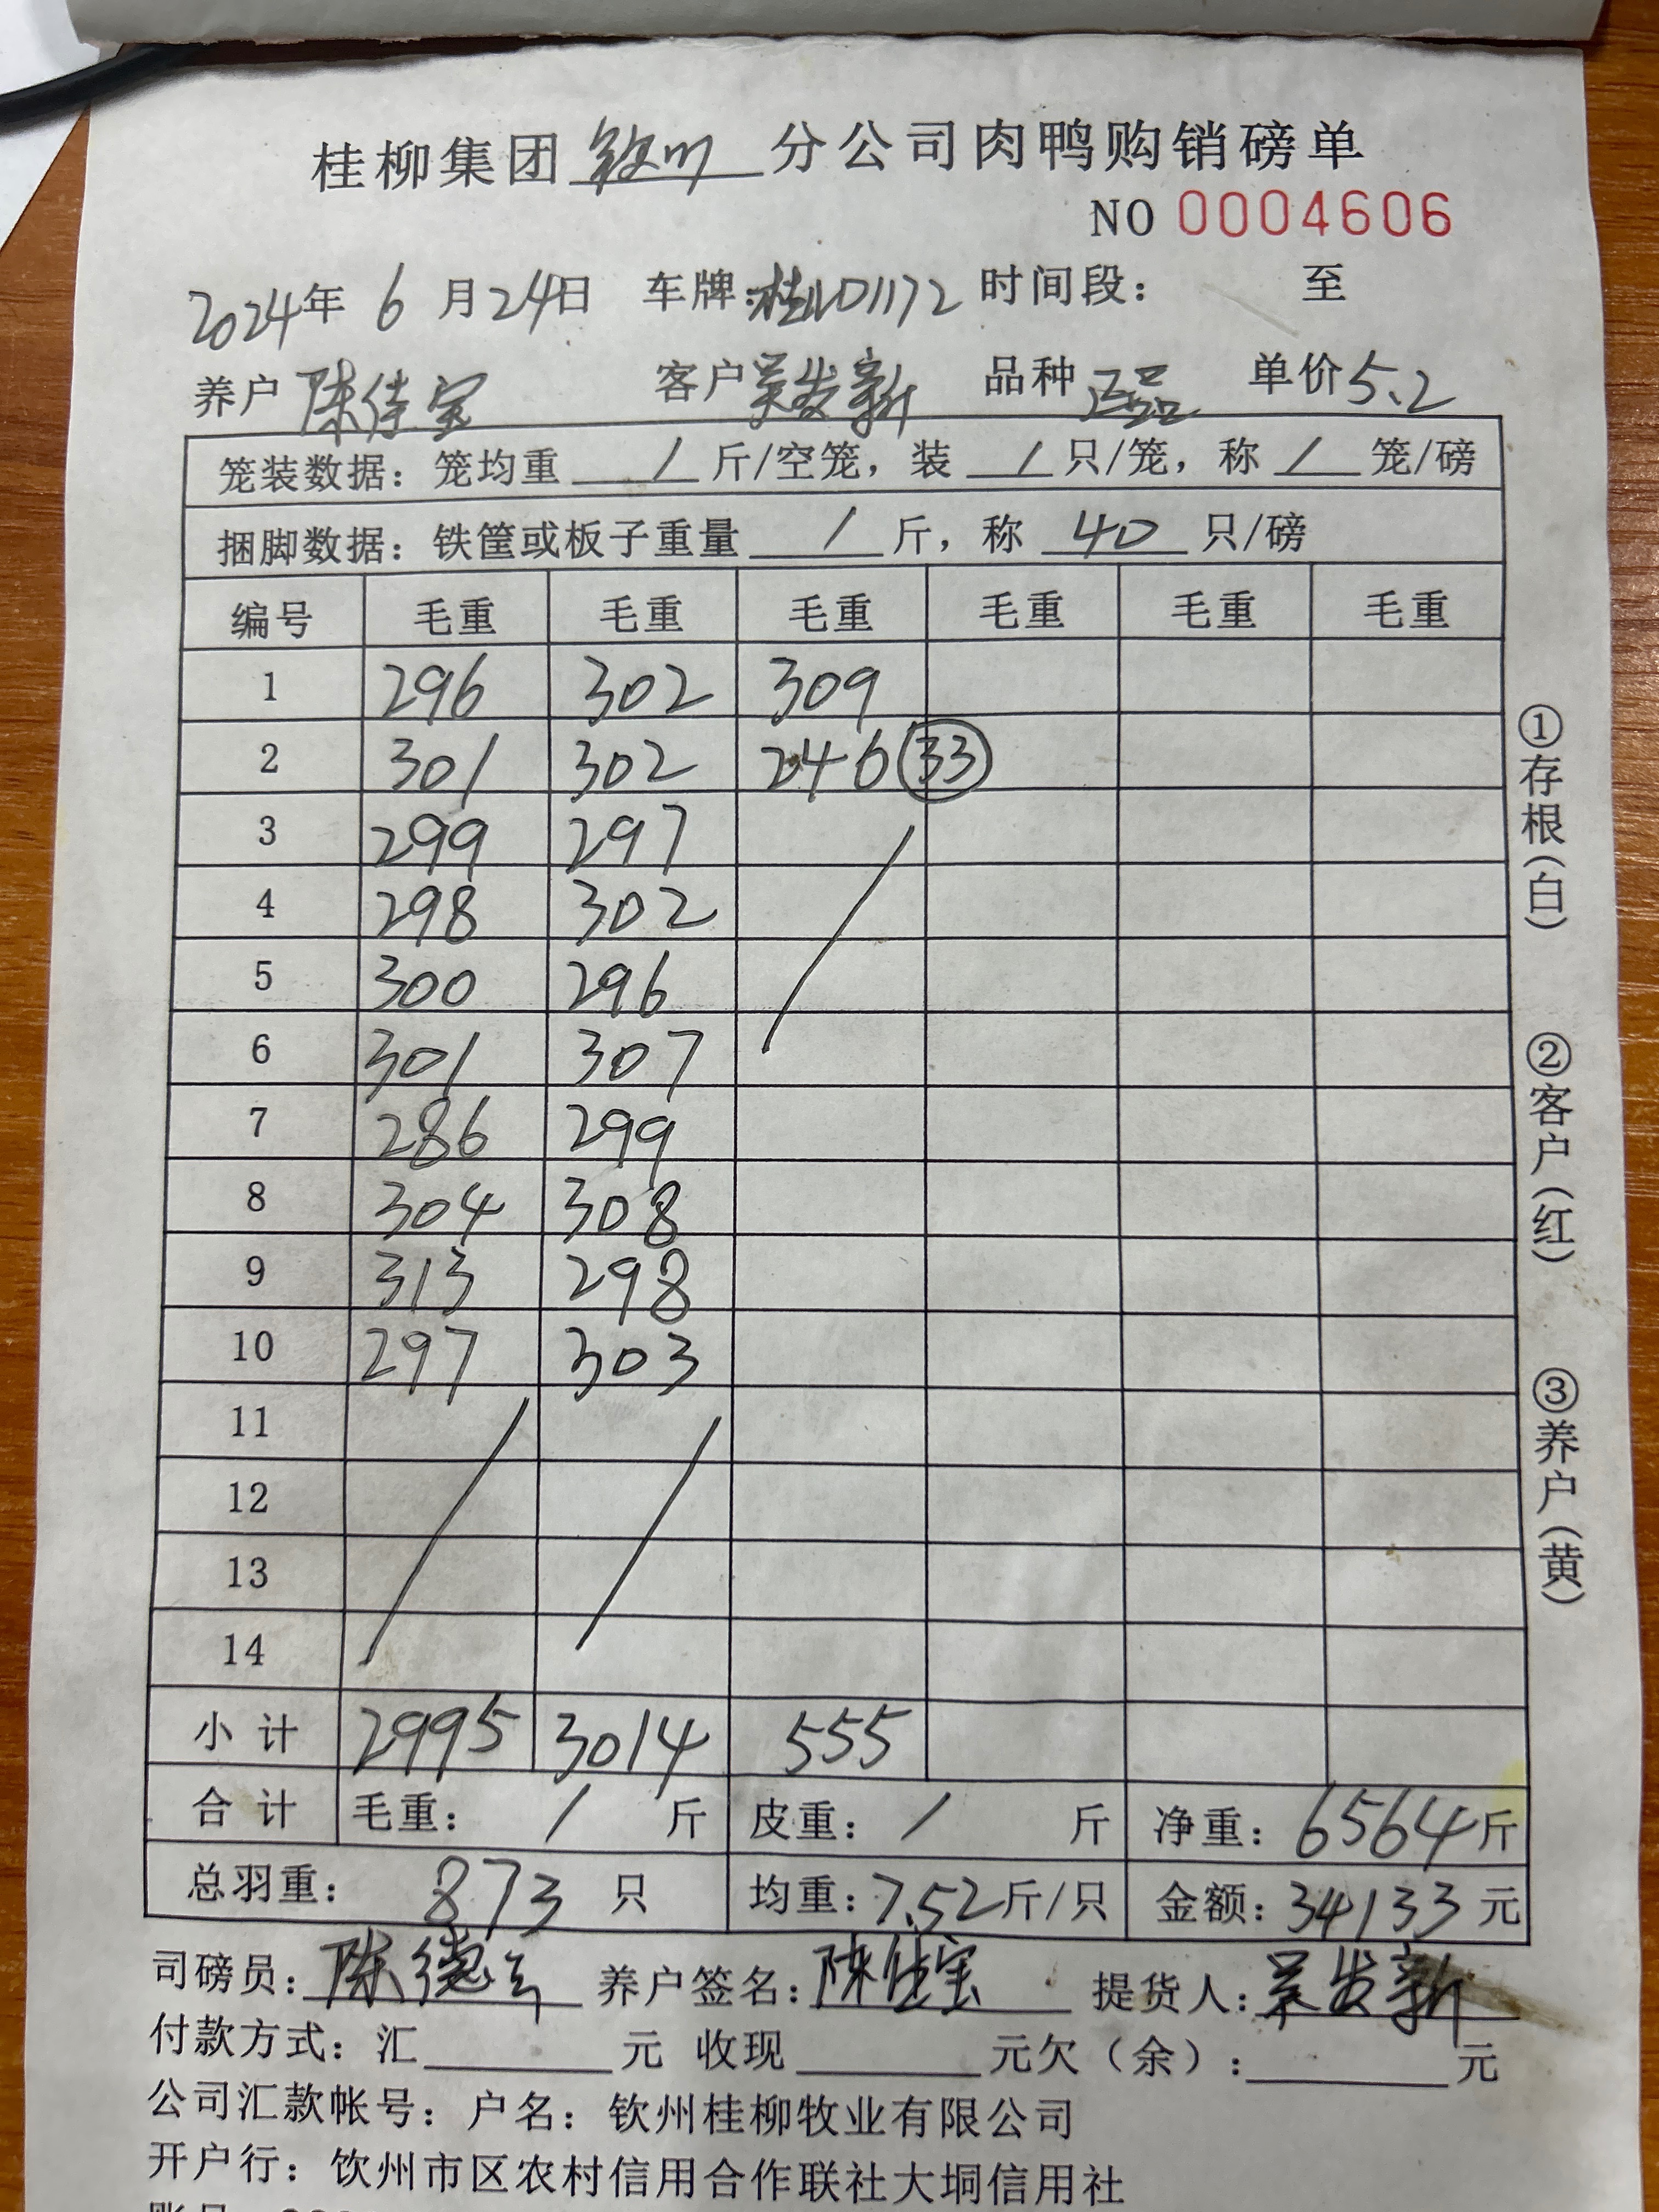 桂柳集团钦州分公司肉鸭购销磅单
NO 0004606
2024年 6 月24日 车牌:桂L01172 时间段: 至
养户 陈佳宝 客户 吴发新 品种 正品 单价5.2
笼装数据: 笼均重 / 斤/空笼, 装 / 只/笼, 称 / 笼/磅
捆脚数据: 铁筐或板子重量 / 斤, 称 40 只/磅
编号 毛重 毛重 毛重 毛重 毛重 毛重
1 296 302 309
2 301 302 246 33
3 299 297
4 298 302
5 300 296
6 301 307
7 286 299
8 304 308
9 313 298
10 297 303
11
12
13
14
小计 2995 3014 555
合计 毛重: / 斤 皮重: / 斤 净重: 6564斤
总羽重: 873 只 均重:7.52斤/只 金额:34133 元
司磅员: 陈德 养户签名: 陈佳宝 提货人: 吴发新
付款方式: 汇 元 收现 元欠(余): 元
公司汇款帐号: 户名: 钦州桂柳牧业有限公司
开户行: 钦州市区农村信用合作联社大垌信用社
①存根(白)
②客户(红)
③养户(黄)